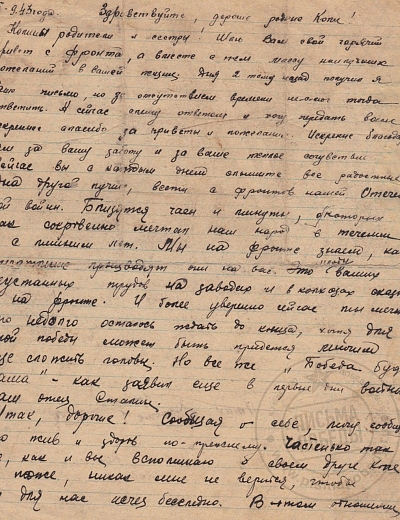 9.43 года. Здравствуйте, дорогие родные Коли!
родители и сестры! Шлю Вам свой горячий
привет с фронта, а вместе с тем массу наилучших
пожеланий в вашей жизни. Дня 2 тому назад получил я
ваше письмо, но за отсутствием времени не мог тогда
ответить. А сейчас спешу ответить и хочу передать Вам
искренне спасибо за приветы и пожелания. Искренне
за вашу заботу и за ваше теплое сочувствие
сейчас вы с каждым днем слышите все радостные
одна другой лучше, вести с фронтов нашей Отечествен
ной войны. Близятся часы и минуты, о которых
так сокровенно мечтал наш народ в течении
с лишним лет. Мы на фронте знаем, ка
производят они на вас. Это Ваших
неустанных трудов на заводах и в колхозах
на фронте. И более уверенно сейчас мы
недолго осталось ждать до конца, хотя для
ной победы может быть придется
еще сложить головы. Но все же „Победа буд
наша" - как заявил еще в первые дни войны
наш отец Сталин.
Итак, дорогие! Сообщая о себе, могу сообщ
что жив и здоров по-прежнему. Частенько так
же, как и вы, вспоминаю о своем друге Коле
тоже, никак мне не верится, чтобы
для нас исчез бесследно. В этом отношении
ПИСЬМА